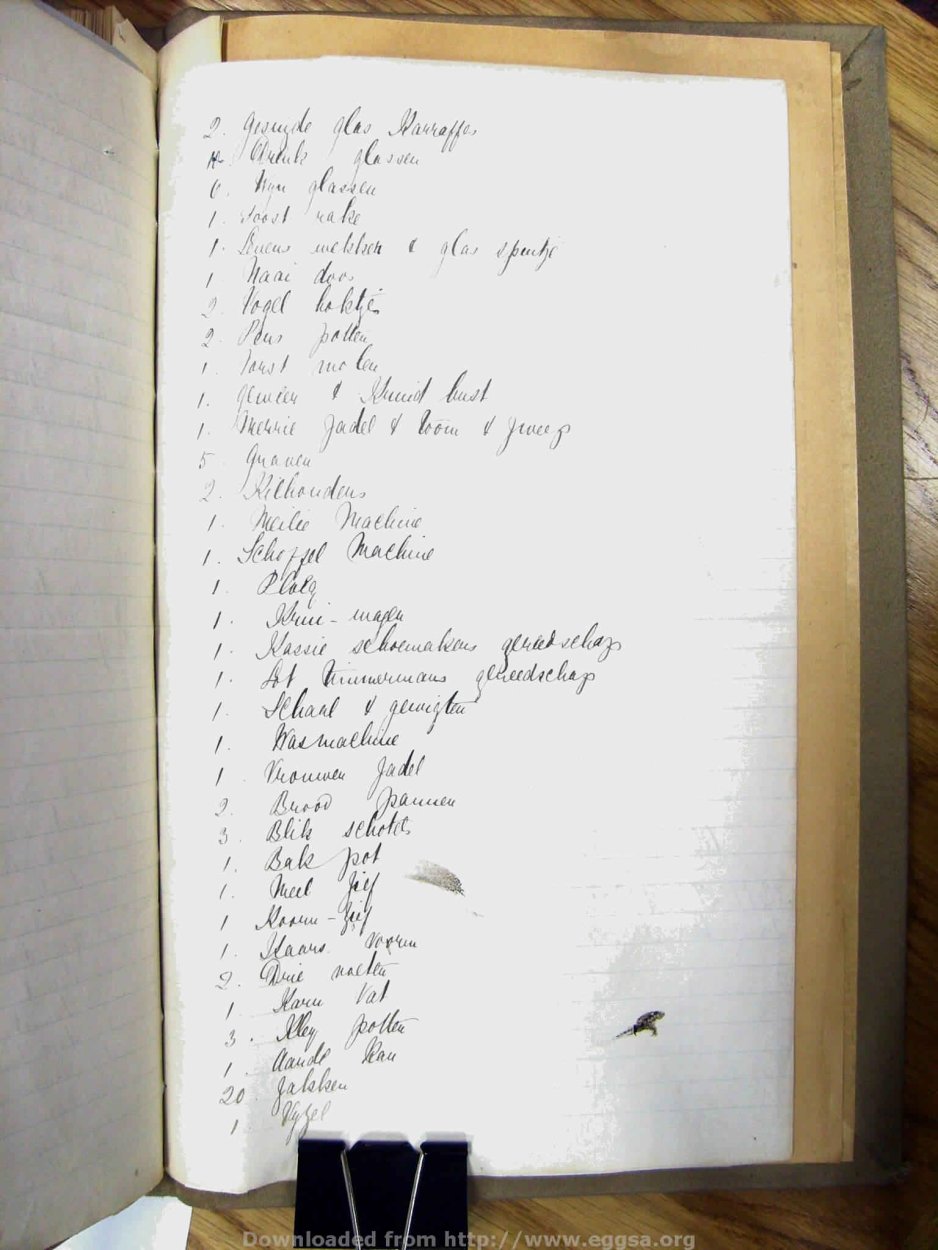 2. Gesnyde glas Karraffes
Drink glassen
6. Wyn glassen
1. Toost rake
1. Levens wekker & glas spuitje
1 Naai doos
2. Vogel hokkjes
2. Pons potten
1. Worst molen
1. Geweer & Kruid
1. Merrie Zadel & toom & zweep
5. Graven
2. Kelhouders
1. Meilie Machine
1. Schoffel Machine
1. Ploeg
1. Krui-wagen
1. Kassie schoemakers gereedschap
1. Lot Timmermans gereedschap
1. Schaal & gewigten
1. Wasmachine
1. Vrouwen Zadel
2. Brood pannen
3. Blik schotels
1. Bak pot
1. Meel Zief
1 Koorn-Zief
1. Kaars vorm
2. Drie voeten
1 Karn Vat
3. Kley potten
1. Aarde Kan
20. Zakken
1. Vyzel
Downloaded from http://www.eggsa.org